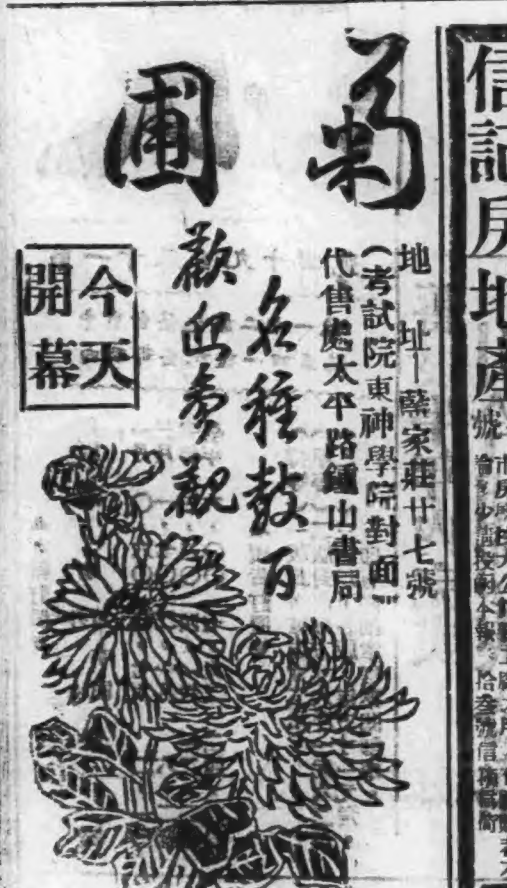 信記房地產
菊圃
地址—藍家莊廿七號
(考試院東神學院對面)
代售處太平路鍾山書局
名種數百
歡迎參觀
今天
開幕